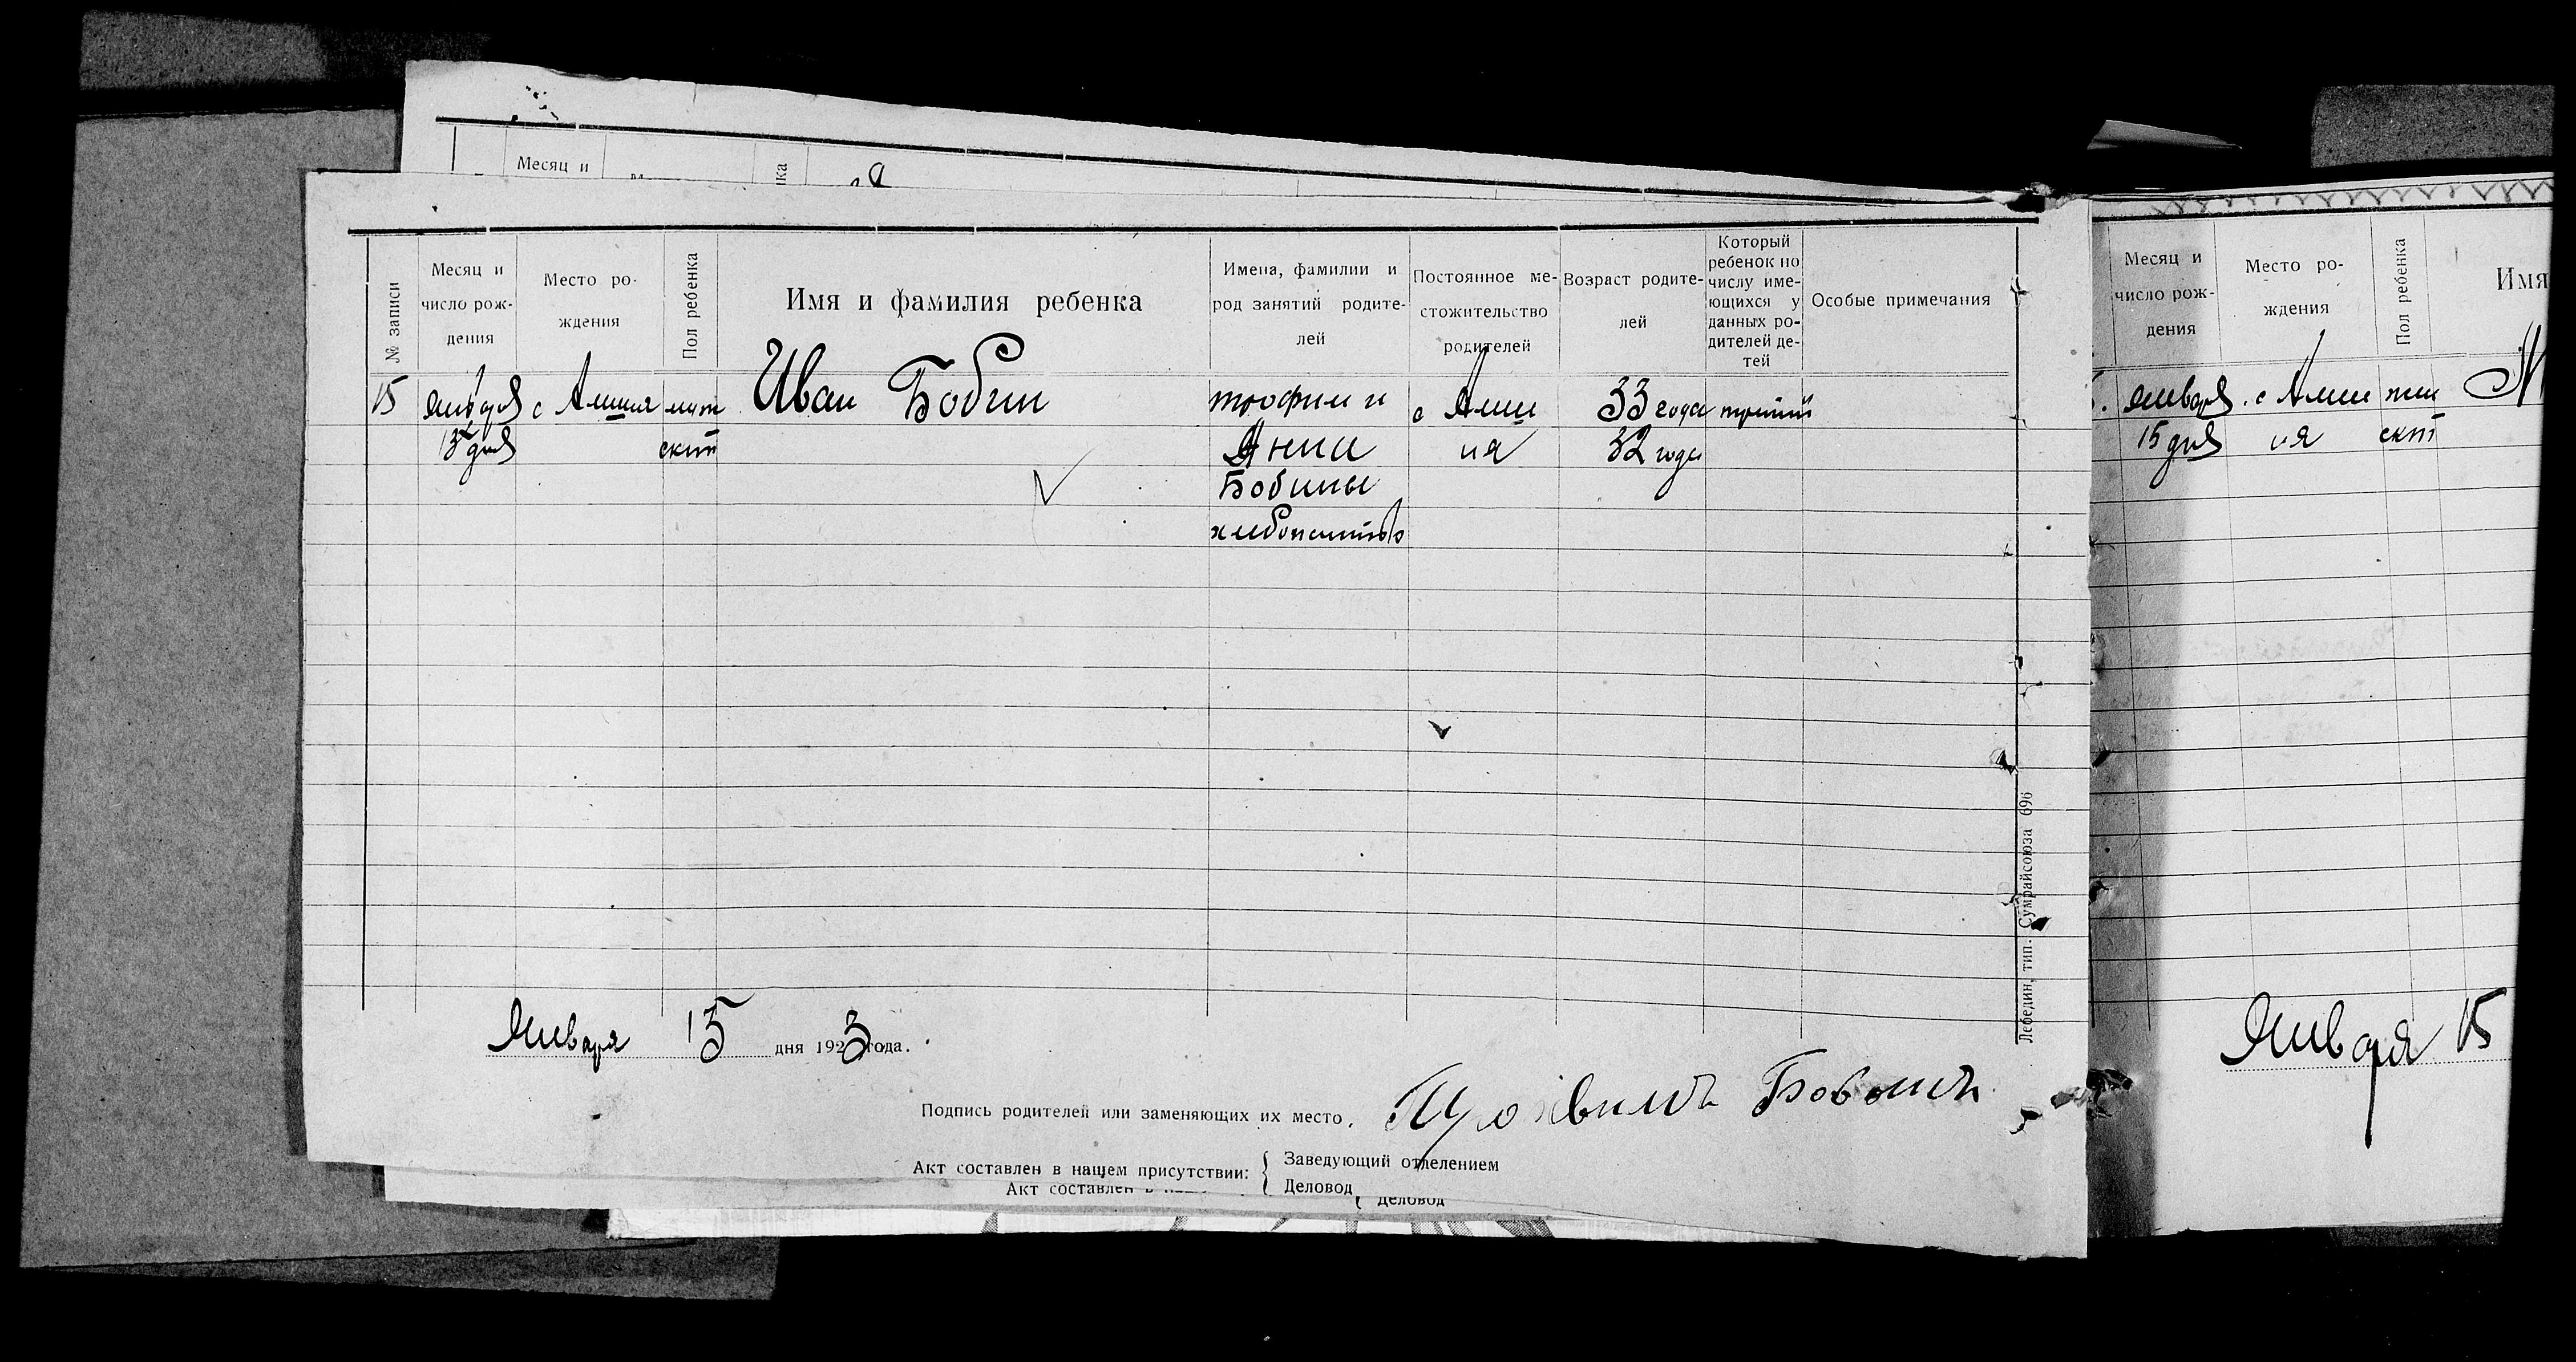 Месяц и
№ записи
Месяц и число рождения
Место рождения
Пол ребенка
Имя и фамилия ребенка
Имена, фамилии и род занятий родителей
Постоянное местожительство родителей
Возраст родителей
Который ребенок по числу имеющихся у данных родителей детей
Особые примечания
15 января с Алишя муж Иван Бобин трофим и с Алеш 33 года третий
15 дня ския Анна ия 32 года
Бобины
хлебопашство
Января 15 дня 1923 года.
Подпись родителей или заменяющих их место.
Акт составлен в нашем присутствии: { Заведующий отделением
Деловод
Акт составлен в
Деловод
Лебедин, тип. Сумрайсоюза 696
Месяц и число рождения
Место рождения
Пол ребенка
Имя
января с
15 дня ия
Января 15